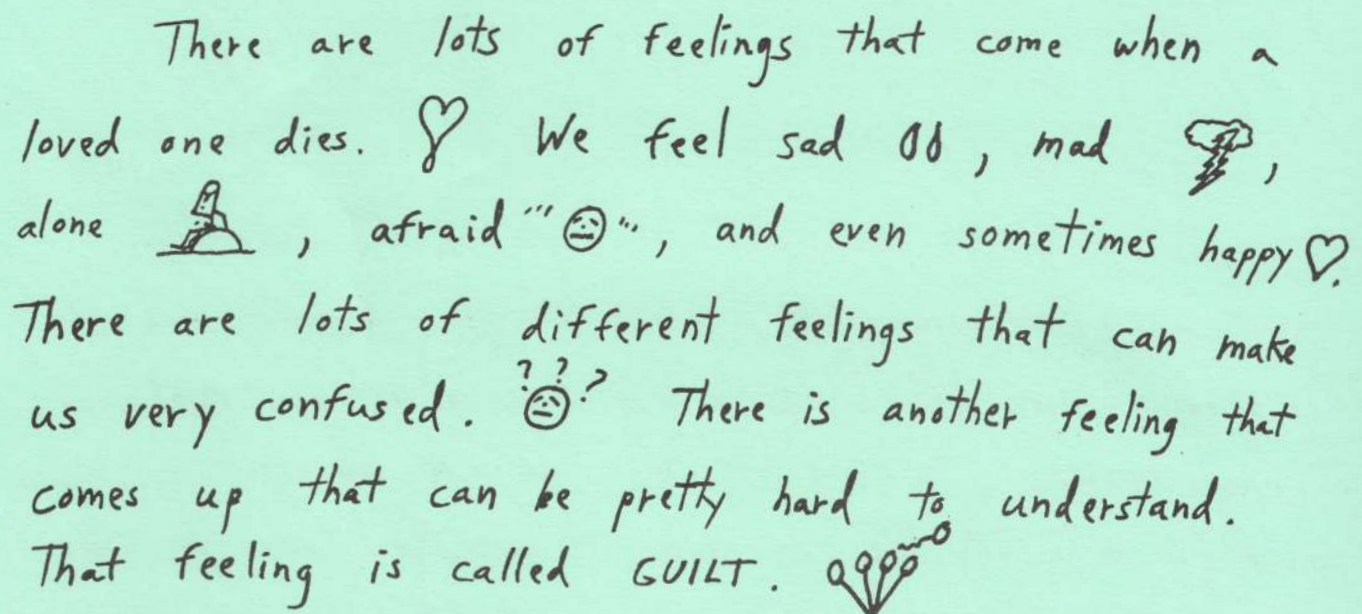 There are lots of feelings that come when a
loved one dies. We feel sad , mad ,
alone , afraid , and even sometimes happy .
There are lots of different feelings that can make
us very confused. ??? There is another feeling that
comes up that can be pretty hard to understand.
That feeling is called GUILT.